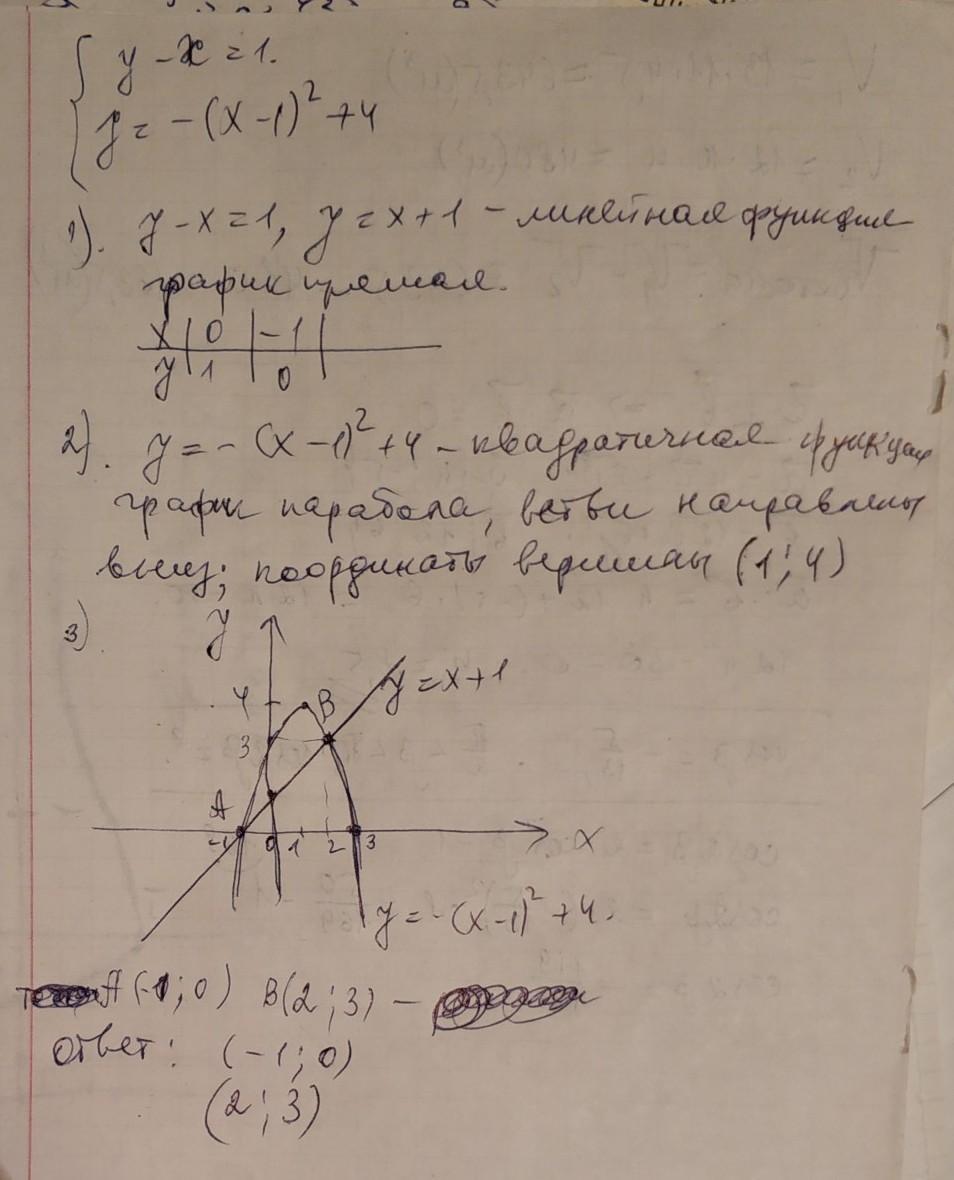 y - x = 1.
y = -(x-1)² + 4
1). y - x = 1, y = x + 1 - линейная функция
график прямая.
x | 0 | -1 |
y | 1 | 0
2). y = -(x-1)² + 4 - квадратичная функция
график парабола, ветви направлены
вниз; координаты вершины (1; 4)
3)
y
4 B y = x + 1
3
A
-1 0 1 2 3 x
y = -(x-1)² + 4.
A (-1; 0) B(2; 3) -
ответ: (-1; 0)
(2; 3)